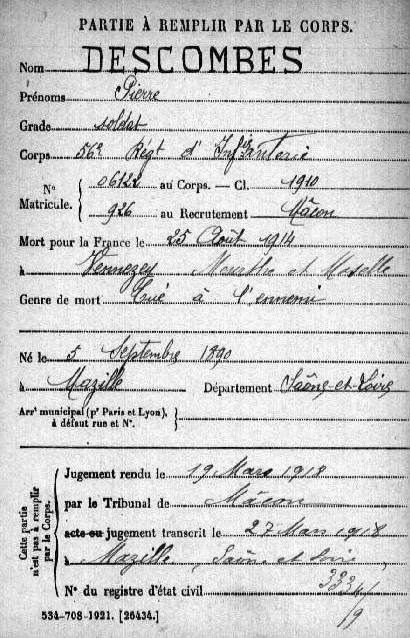 PARTIE À REMPLIR PAR LE CORPS.
Nom DESCOMBES
Prénoms Pierre
Grade soldat
Corps 56e Régt d'Infanterie
N° Matricule. { 06122 au Corps. — Cl. 1910
926 au Recrutement Mâcon
Mort pour la France le 25 Août 1914
à Vennezey Meurthe et Moselle
Genre de mort Tué à l'ennemi
Né le 5 Septembre 1890
à Mazille Département Saône-et-Loire
Arrt municipal (pr Paris et Lyon), à défaut rue et N°. }
Cette partie n'est pas à remplir par le Corps.
Jugement rendu le 19 Mars 1918
par le Tribunal de Mâcon
acte ou jugement transcrit le 27 Mars 1918
à Mazille, Saône et Loire
N° du registre d'état civil
534-708-1921. [26434.]